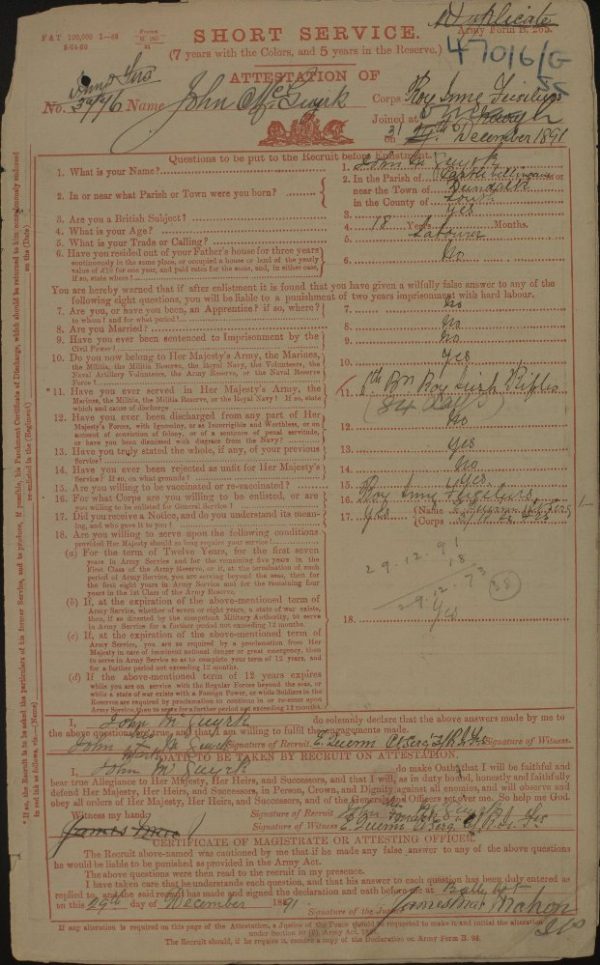 F A T 100,000 1—89
Forms
Duplicate
SHORT SERVICE.
Army Form B. 265.
(7 years with the Colors, and 5 years in the Reserve.)
47016/G
ATTESTATION OF
No. 3476 Name John McGuyrk Corps Roy Innis Fusiliers
Joined at
December 1891
Questions to be put to the Recruit before Enlistment.
1. What is your Name?
1. John McGuyrk
2. In or near what Parish or Town were you born?
2. In the Parish of
near the Town of Dundalk
in the County of Louth
3. Are you a British Subject?
3. Yes
4. What is your Age?
4. 18 Years Months.
5. What is your Trade or Calling?
5. Labourer
6. Have you resided out of your Father's house for three years
continuously in the same place, or occupied a house or land of the yearly
value of £10 for one year, and paid rates for the same, and, in either case,
if so, state where?
6. No
You are hereby warned that if after enlistment it is found that you have given a wilfully false answer to any of the
following eight questions, you will be liable to a punishment of two years imprisonment with hard labour.
7. Are you, or have you been, an Apprentice? if so, where?
to whom? and for what period?
7. No
8. Are you Married?
8. No
9. Have you ever been sentenced to Imprisonment by the
Civil Power?
9. No
10. Do you now belong to Her Majesty's Army, the Marines,
the Militia, the Militia Reserve, the Royal Navy, the Volunteers, the
Naval Artillery Volunteers, the Army Reserve, or the Naval Reserve
Force?
10. Yes
*11. Have you ever served in Her Majesty's Army, the
Marines, the Militia, the Militia Reserve, or the Royal Navy? If so, state
which and cause of discharge
11. Bn Roy Irish Rifles
(84 days)
12. Have you ever been discharged from any part of Her
Majesty's Forces, with Ignominy, or as Incorrigible and Worthless, or on
account of conviction of felony, or of a sentence of penal servitude,
or have you been dismissed with disgrace from the Navy?
12. No
13. Have you truly stated the whole, if any, of your previous
Service?
13. Yes
14. Have you ever been rejected as unfit for Her Majesty's
Service? If so, on what grounds?
14. No
15. Are you willing to be vaccinated or re-vaccinated?
15. Yes
16. For what Corps are you willing to be enlisted, or are
you willing to be enlisted for General Service?
16. Roy Innis Fusiliers
17. Did you receive a Notice, and do you understand its meaning,
and who gave it to you?
17. Yes
Name
Corps
18. Are you willing to serve upon the following conditions
provided Her Majesty should so long require your service?
(a) For the term of Twelve Years, for the first seven
years in Army Service and for the remaining five years in the
First Class of the Army Reserve, or if, at the termination of such
period of Army Service, you are serving beyond the seas, then for
the first eight years in Army Service and for the remaining four
years in the 1st Class of the Army Reserve.
29.12.91
18
29.12.73
(b) If, at the expiration of the above-mentioned term of
Army Service, whether of seven or eight years, a state of war exists,
then, if so directed by the competent Military Authority, to serve
in Army Service for a further period not exceeding 12 months.
(c) If, at the expiration of the above-mentioned term of
Army Service, you are so required by a proclamation from Her
Majesty in case of imminent national danger or great emergency, then
to serve in Army Service so as to complete your term of 12 years, and
for a further period not exceeding 12 months.
18. Yes
(d) If the above-mentioned term of 12 years expires
while you are on service with the Regular Forces beyond the seas, or
while a state of war exists with a Foreign Power, or while Soldiers in the
Reserves are required by proclamation to continue in or re-enter upon
Army Service, then to serve for a further period not exceeding 12 months.
I, John McGuyrk do solemnly declare that the above answers made by me to
the above questions are true, and that I am willing to fulfil the engagements made.
John McGuyrk Signature of Recruit. Signature of Witness.
OATH TO BE TAKEN BY RECRUIT ON ATTESTATION.
I, John McGuyrk do make Oath, that I will be faithful and
bear true Allegiance to Her Majesty, Her Heirs, and Successors, and that I will, as in duty bound, honestly and faithfully
defend Her Majesty, Her Heirs, and Successors, in Person, Crown, and Dignity against all enemies, and will observe and
obey all orders of Her Majesty, Her Heirs, and Successors, and of the Generals and Officers set over me. So help me God.
Witness my hand, Signature of Recruit
Signature of Witness
CERTIFICATE OF MAGISTRATE OR ATTESTING OFFICER.
The Recruit above-named was cautioned by me that if he made any false answer to any of the above questions
he would be liable to be punished as provided in the Army Act.
The above questions were then read to the recruit in my presence.
I have taken care that he understands each question, and that his answer to each question has been duly entered as
replied to, and the said recruit has made and signed the declaration and oath before me at
on this 29th day of December 1891.
Signature of the Justice James MacMahon
If any alteration is required on this page of the Attestation, a Justice of the Peace should be requested to make it and initial the alteration
The Recruit should, if he require it, receive a copy of the Declaration on Army Form B.